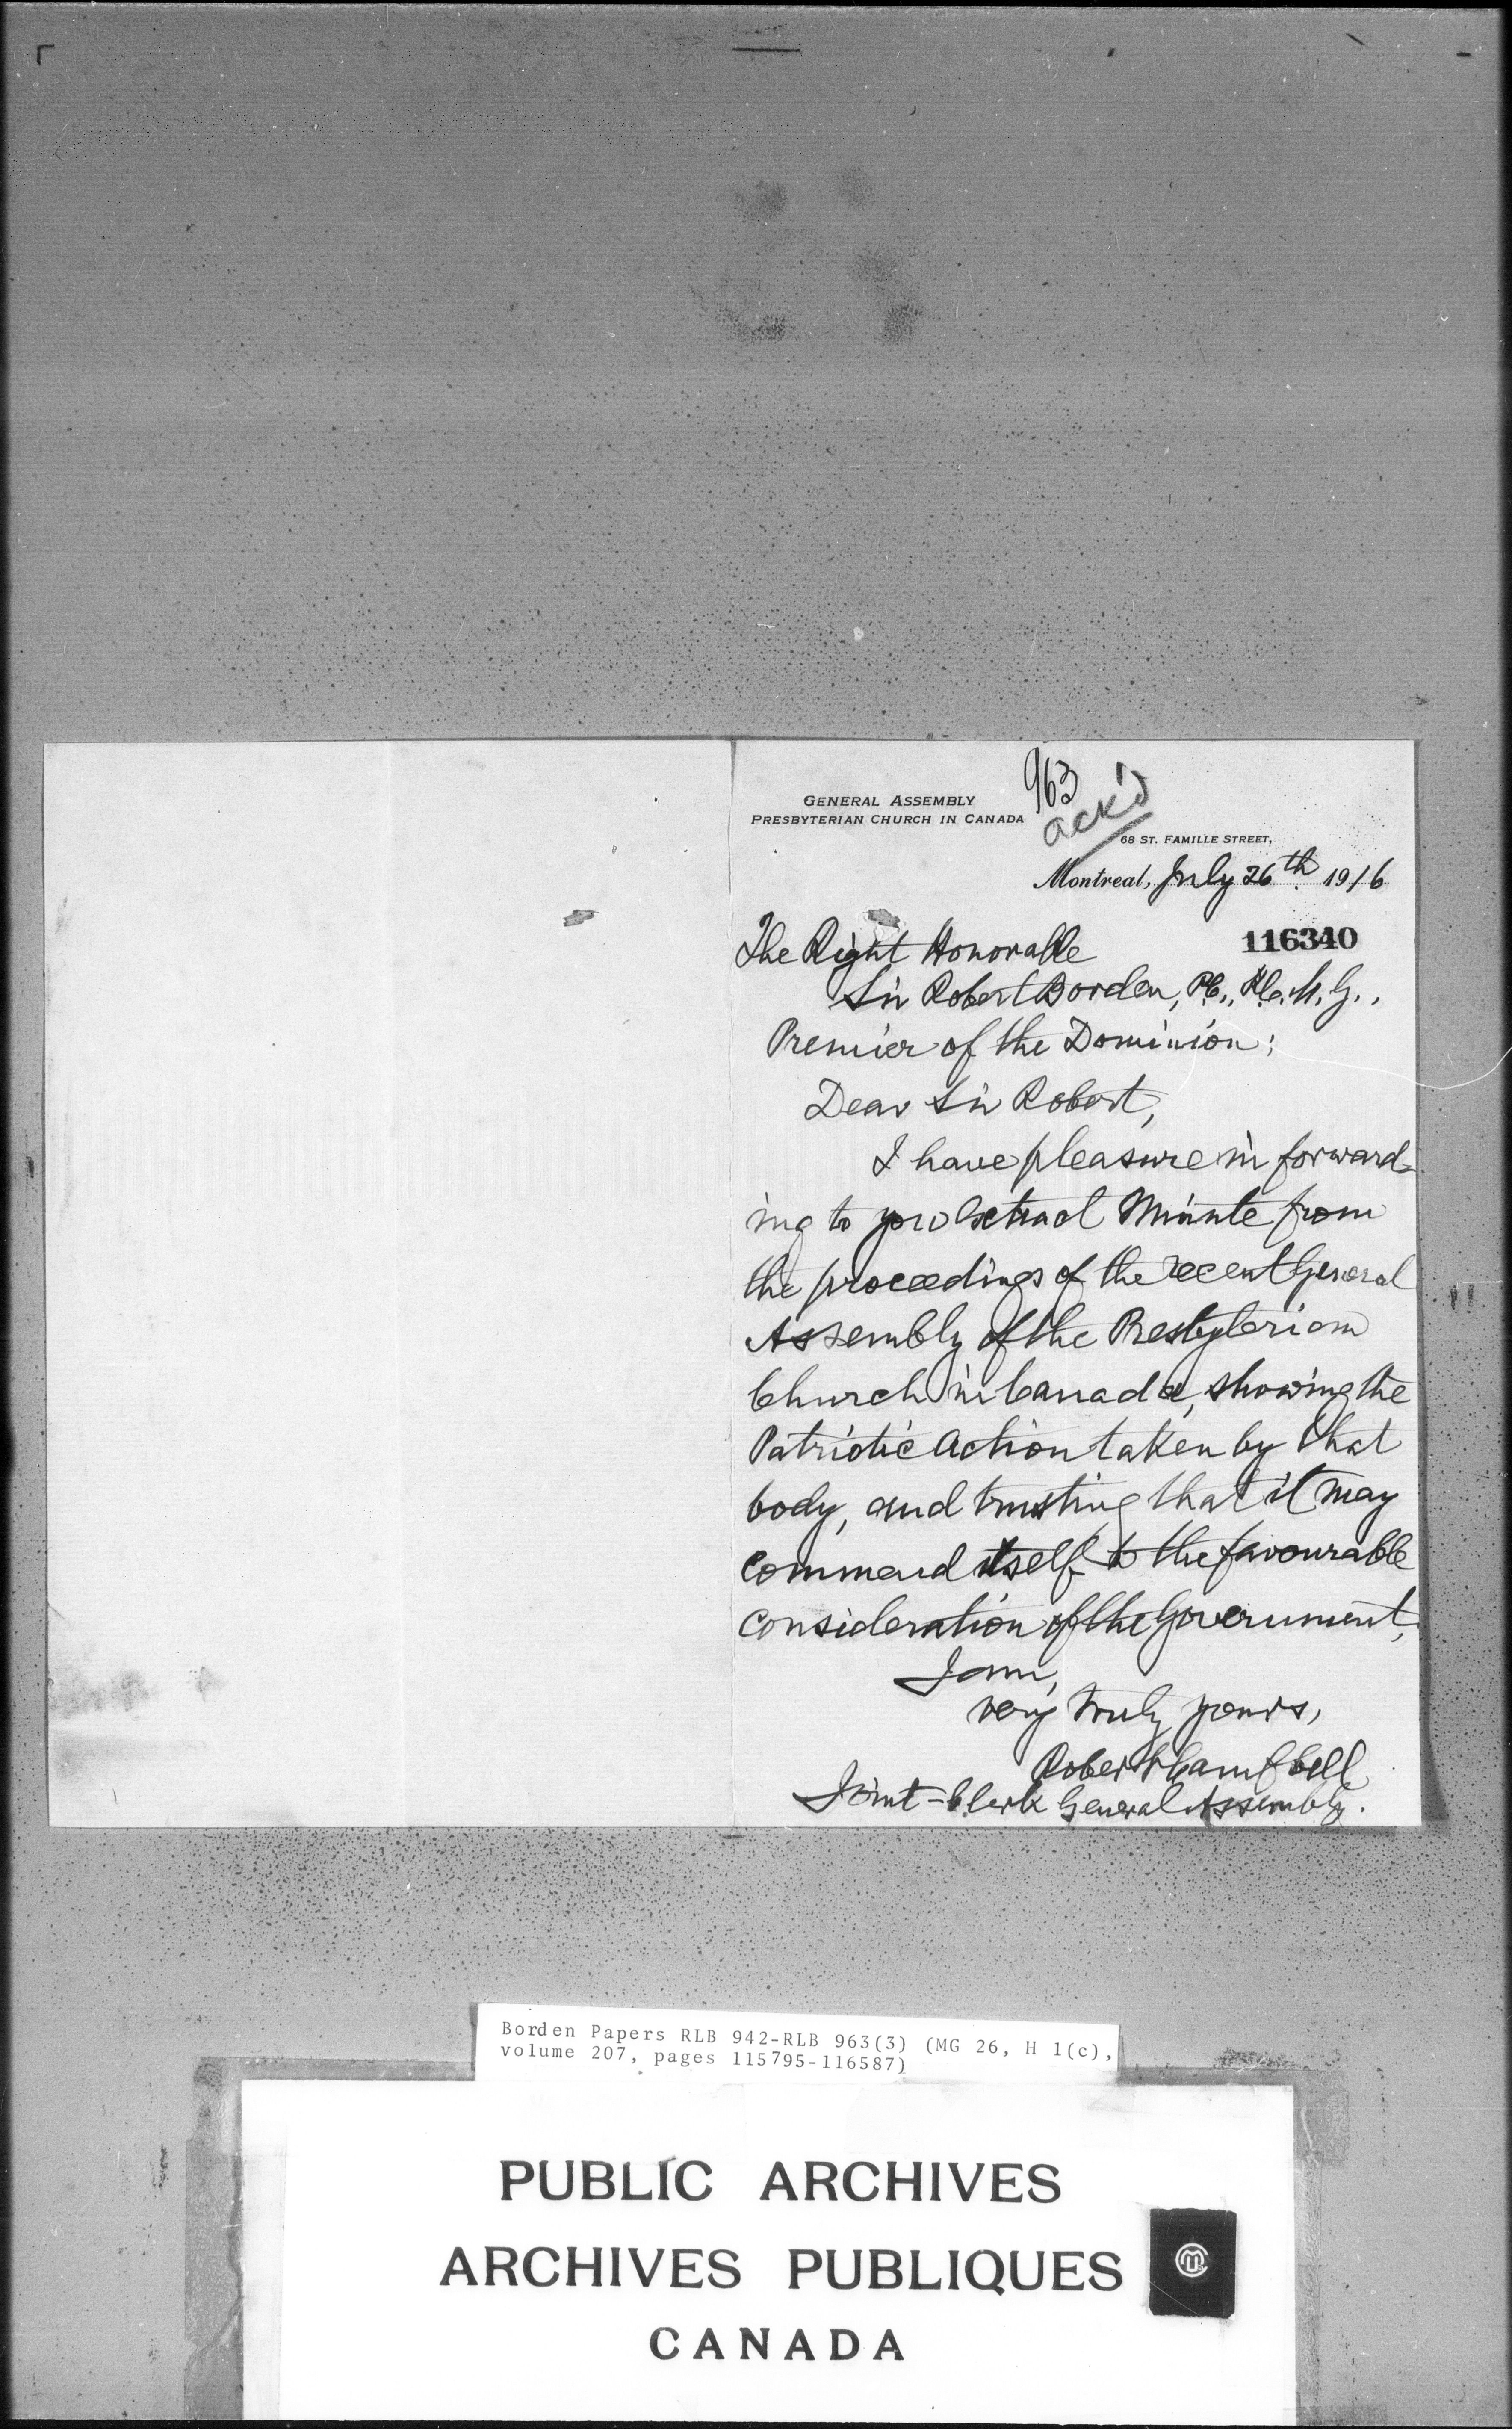 963
ack'd
GENERAL ASSEMBLY
PRESBYTERIAN CHURCH IN CANADA
68 ST. FAMILLE STREET,
Montreal, July 26th 1916
116340
The Right Honorable
Sir Robert Borden, P.C., K.C.M.G.,
Premier of the Dominion:
Dear Sir Robert,
I have pleasure in forward-
ing to you Extract Minute from
the proceedings of the recent General
Assembly of the Presbyterian
Church in Canada, showing the
Patriotic Action taken by that
body, and trusting that it may
commend itself to the favourable
consideration of the Government,
I am,
very truly yours,
Robert Campbell
Joint-Clerk General Assembly.
Borden Papers RLB 942-RLB 963(3) (MG 26, H 1(c),
volume 207, pages 115795-116587)
PUBLIC ARCHIVES
ARCHIVES PUBLIQUES
CANADA